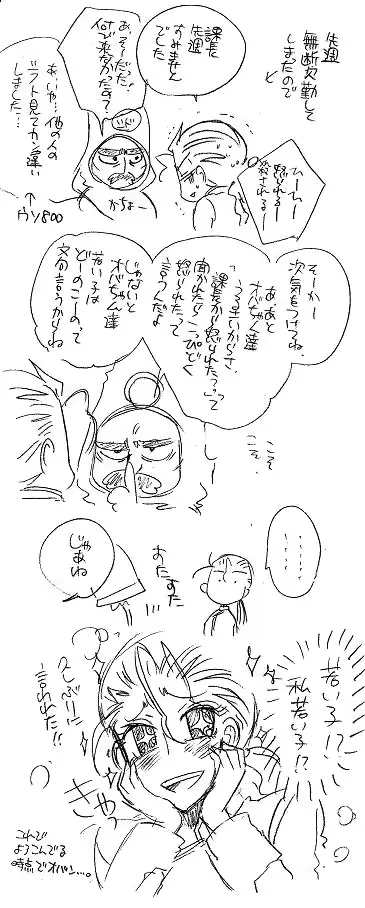 先週
無断欠勤して
しまたので
ど
ひーー
怒られるー
殺されるー
課長
先週
すみませ
でした
あっそーだった！
何で来なかったの？
かちょー
あ、いや…他の人の
シフト見てカン違い
しました…
↑
ウソ800
そーかー
次気をつけてね
ああと
オバちゃん達
うるさいからさ
「課長から怒られた？」って
聞かれたらこっぴどく
怒られたって
言うんだよ
じゃないと
オバちゃん達
若い子は
どーのこーのって
文句言うからね
こそ
こそ
‥‥‥
じゃあね
すたすた
若い子！？
私若い子！？
久しぶりに
言われた！！
きゃー
こんで
ようこんでる
時点でオバン…。